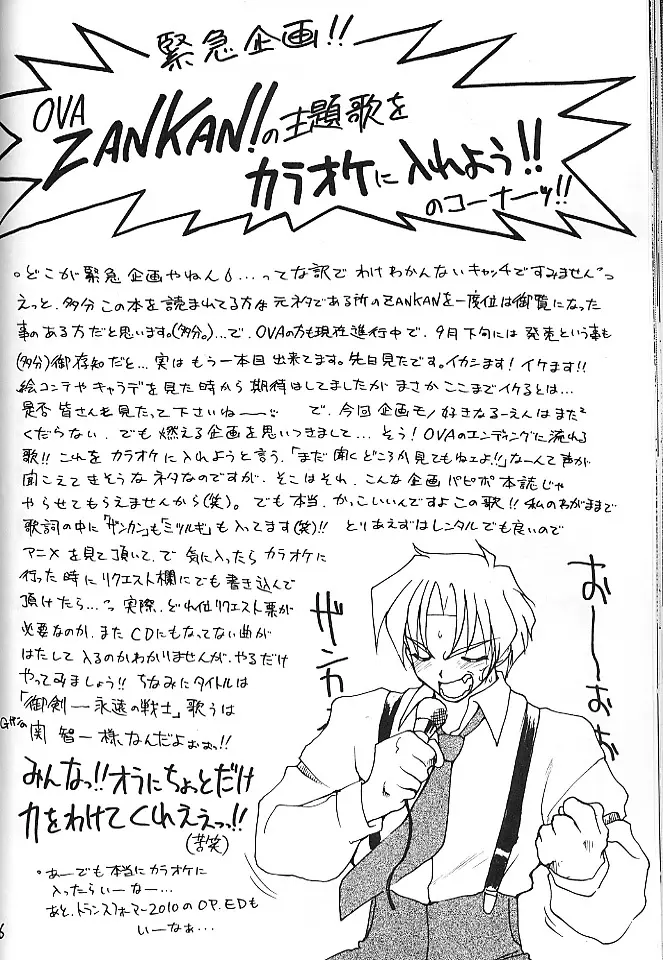 緊急企画!!
OVA
ZANKAN!の主題歌を
カラオケに入れよう!!
のコーナーッ!!
。どこが緊急企画やねん6...ってな訳でわけわかんないキャッチですみません"っ
えっと、多分この本を読まれてる方は元ネタである所のZANKANを一度位は御覧になった
事のある方だと思います。(多分。)...で、OVAの方も現在進行中で、9月下旬には発売という事も
(多分)御存知だと...実はもう一本目出来てます。先日見たです。イカシます!イケます!!
絵コンテやキャラデを見た時から期待はしてましたがまさかここまでイケるとは...
是否皆さんも見たって下さいね〜 で、今回企画モノ好きなるーえんはまた2
くだらない、でも燃える企画を思いつきまして...そう!OVAのエンディングに流れる
歌!!これをカラオケに入れようと言う、「まだ聞くどころか見てもねェよ!!」なーんて声が
聞こえてきそうなネタなのですが、そこはそれ、こんな企画パピポ本誌じゃ
やらせてもらえませんから(笑)。でも本当、かっこいいんですよこの歌!!私のわがままで
歌詞の中に「ザンカン」も「ミツルギ」も入ってます(笑)!! とりあえずはレンタルでも良いので
アニメを見て頂いて、で気に入ったらカラオケに
行った時にリクエスト欄にでも書き込んで
頂けたら...っ実際、どれ位リクエスト票が
必要なのか、またCDにもなってない曲が
はたして入るのかわかりませんが、やるだけ
やってみましょう!!ちなみにタイトルは
「御剣―永遠の戦士」歌うは
Gガンの
関智一様なんだよぉぉ!!
みんなっ!!オラにちょっとだけ
力をわけてくれええっっ!!
(苦笑)
。あーでも本当にカラオケに
入ったらいーなー...
あと、トランスフォーマー2010のOP.EDも
いーなぁ...
ザンカ
おーーおお
6